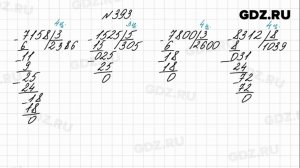 GDZ.RU
№393
4ц. 3ц. 4ц. 4ц.
-7158|3 -1525|5 -7800|3 -8312|8
6 |2386 15 |305 6 |2600 8 |1039
-11 025 -18 031
9 25 18 24
-25 0 0 -72
24 72
-18 0
18
0